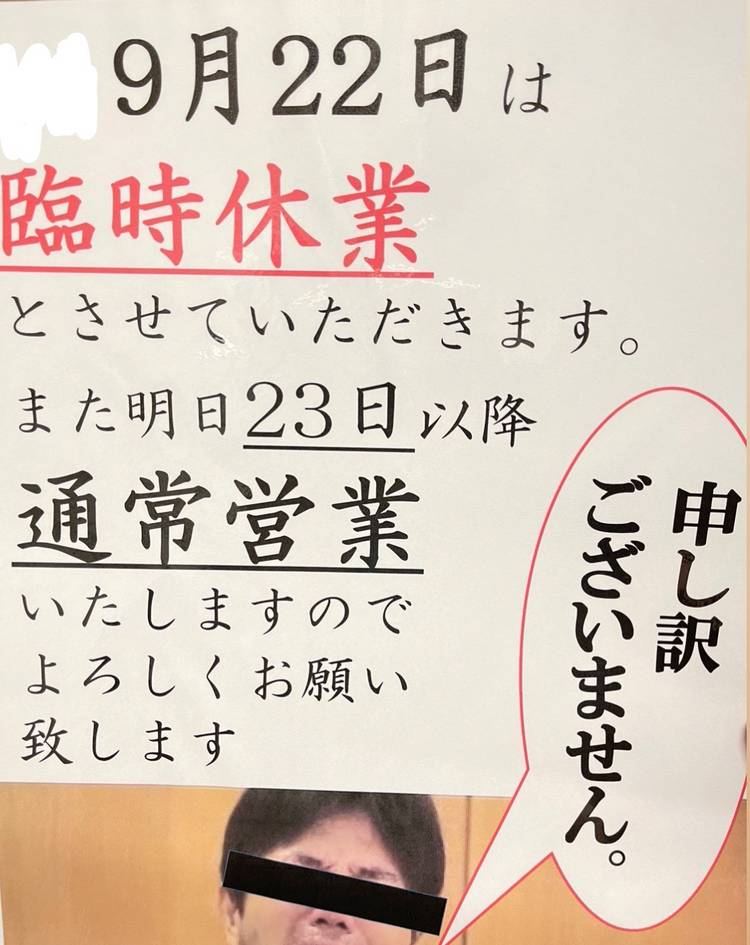 9月22日は
臨時休業
とさせていただきます。
また明日23日以降
通常営業
いたしますので
よろしくお願い
致します
申し訳
ございません。